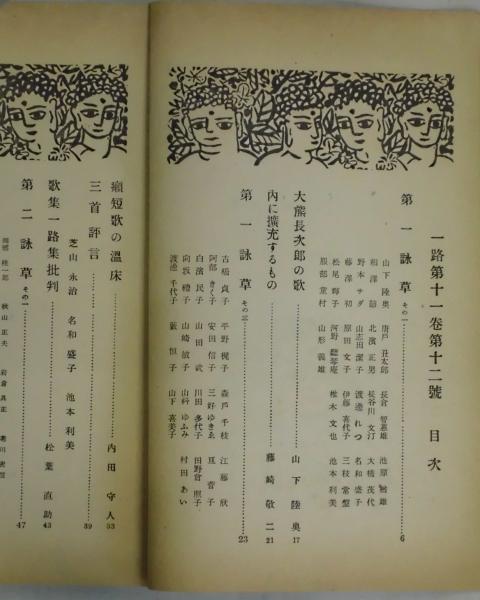 一路第十一巻第十二號 目次
第一詠草 その一 6
山下陸奥 唐戸丑太郎 長倉智恵雄
相澤 北濱正男 長谷川文汀 大橋茂代
野本サダ 山志田潔子 渡邊れつ 名和盛子
藤澤初 原田文子 伊藤喜代子 三枝常盤
松尾輝子 河野聽琴庵 椎木文也 池本利美
服部童村 山形義雄
大熊長次郎の歌 山下陸奥 17
內に擴充するもの 藤崎敬二 21
第一詠草 その三 23
古橋貞子 平野梶子 森戸千枝 江藤欣
阿部きく子 安田信子 三好ゆきゑ 亘菅子
白濱民子 山田武 川田多代子 田野曾照子
向坂禮子 山崎誠子 山科ゆふみ 村田あい
渡邊千代子 藍恒子 山下喜美子
癩短歌の溫床 內田守人 33
三首評言 39
芝山永治 名和盛子 池本利美
歌集一路集批判 松葉直助 43
第二詠草 その一 47
秋山正夫 岩倉具正